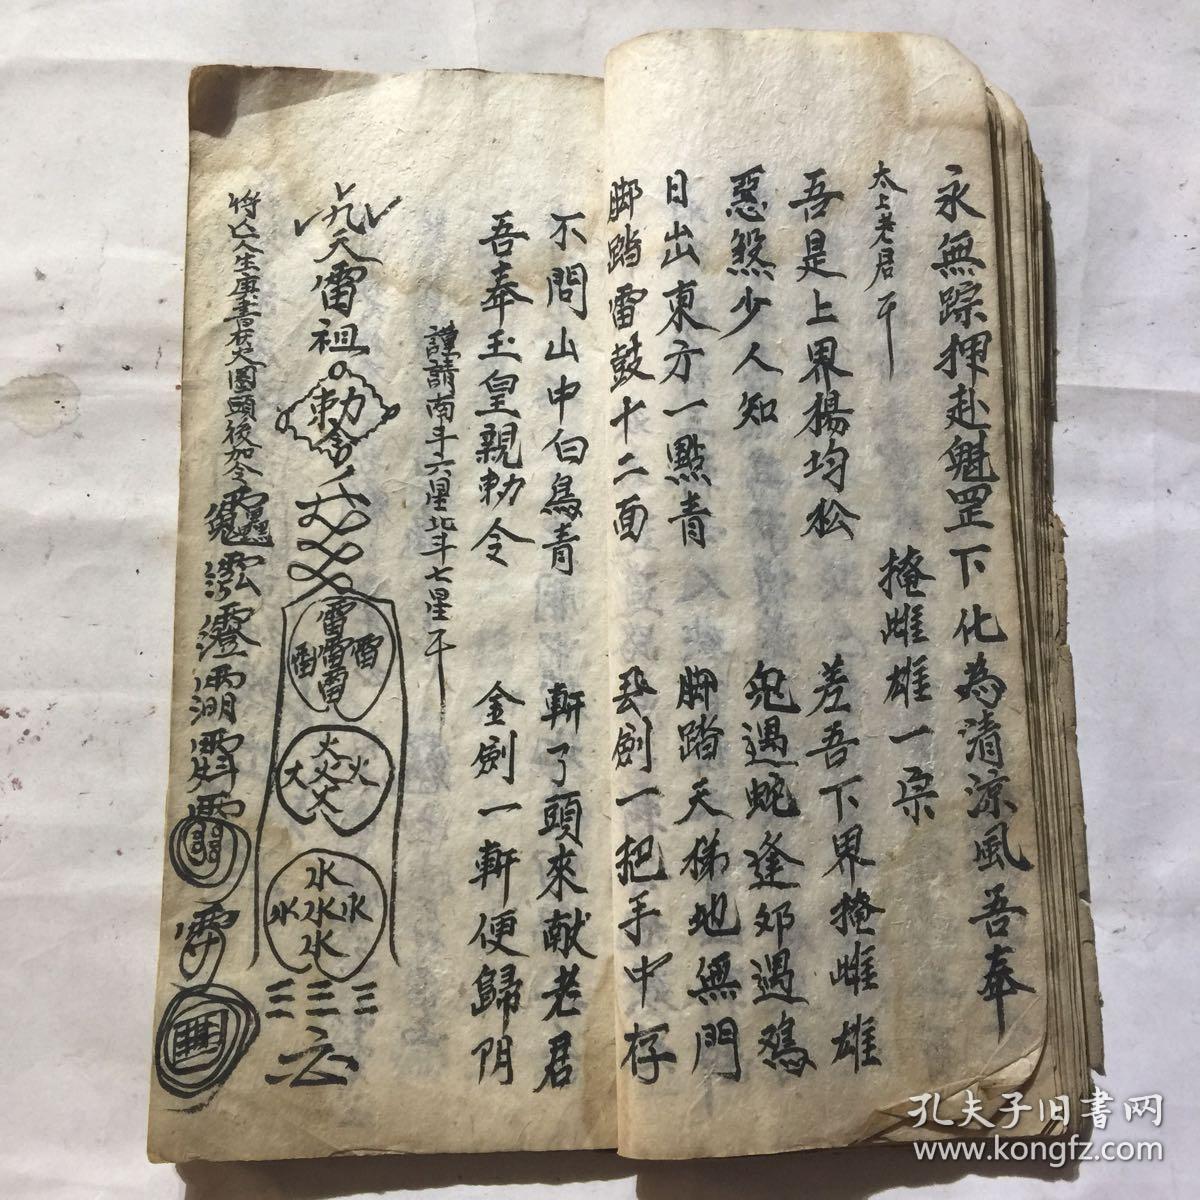 永無踪押赴魁罡下化為清涼風吾奉
太上老君
掩雌雄一宗
吾是上界楊均松 差吾下界掩雌雄
惡煞少人知 兔遇蛇逢郊遇鴉
日出東方一點青 脚踏天梯地無門
脚踏雷鼓十二面 長劍一把手中存
不問山中白鳥青 斬了頭來献老君
吾奉玉皇親勅令 金劍一斬便歸阴
謹請南斗六星北斗七星
九天雷祖
勅令
雷雷雷雷雷
火火火火火
水水水水水
三三三
将亡人生庚書在大圈頭後加令
孔夫子旧書网
www.kongfz.com